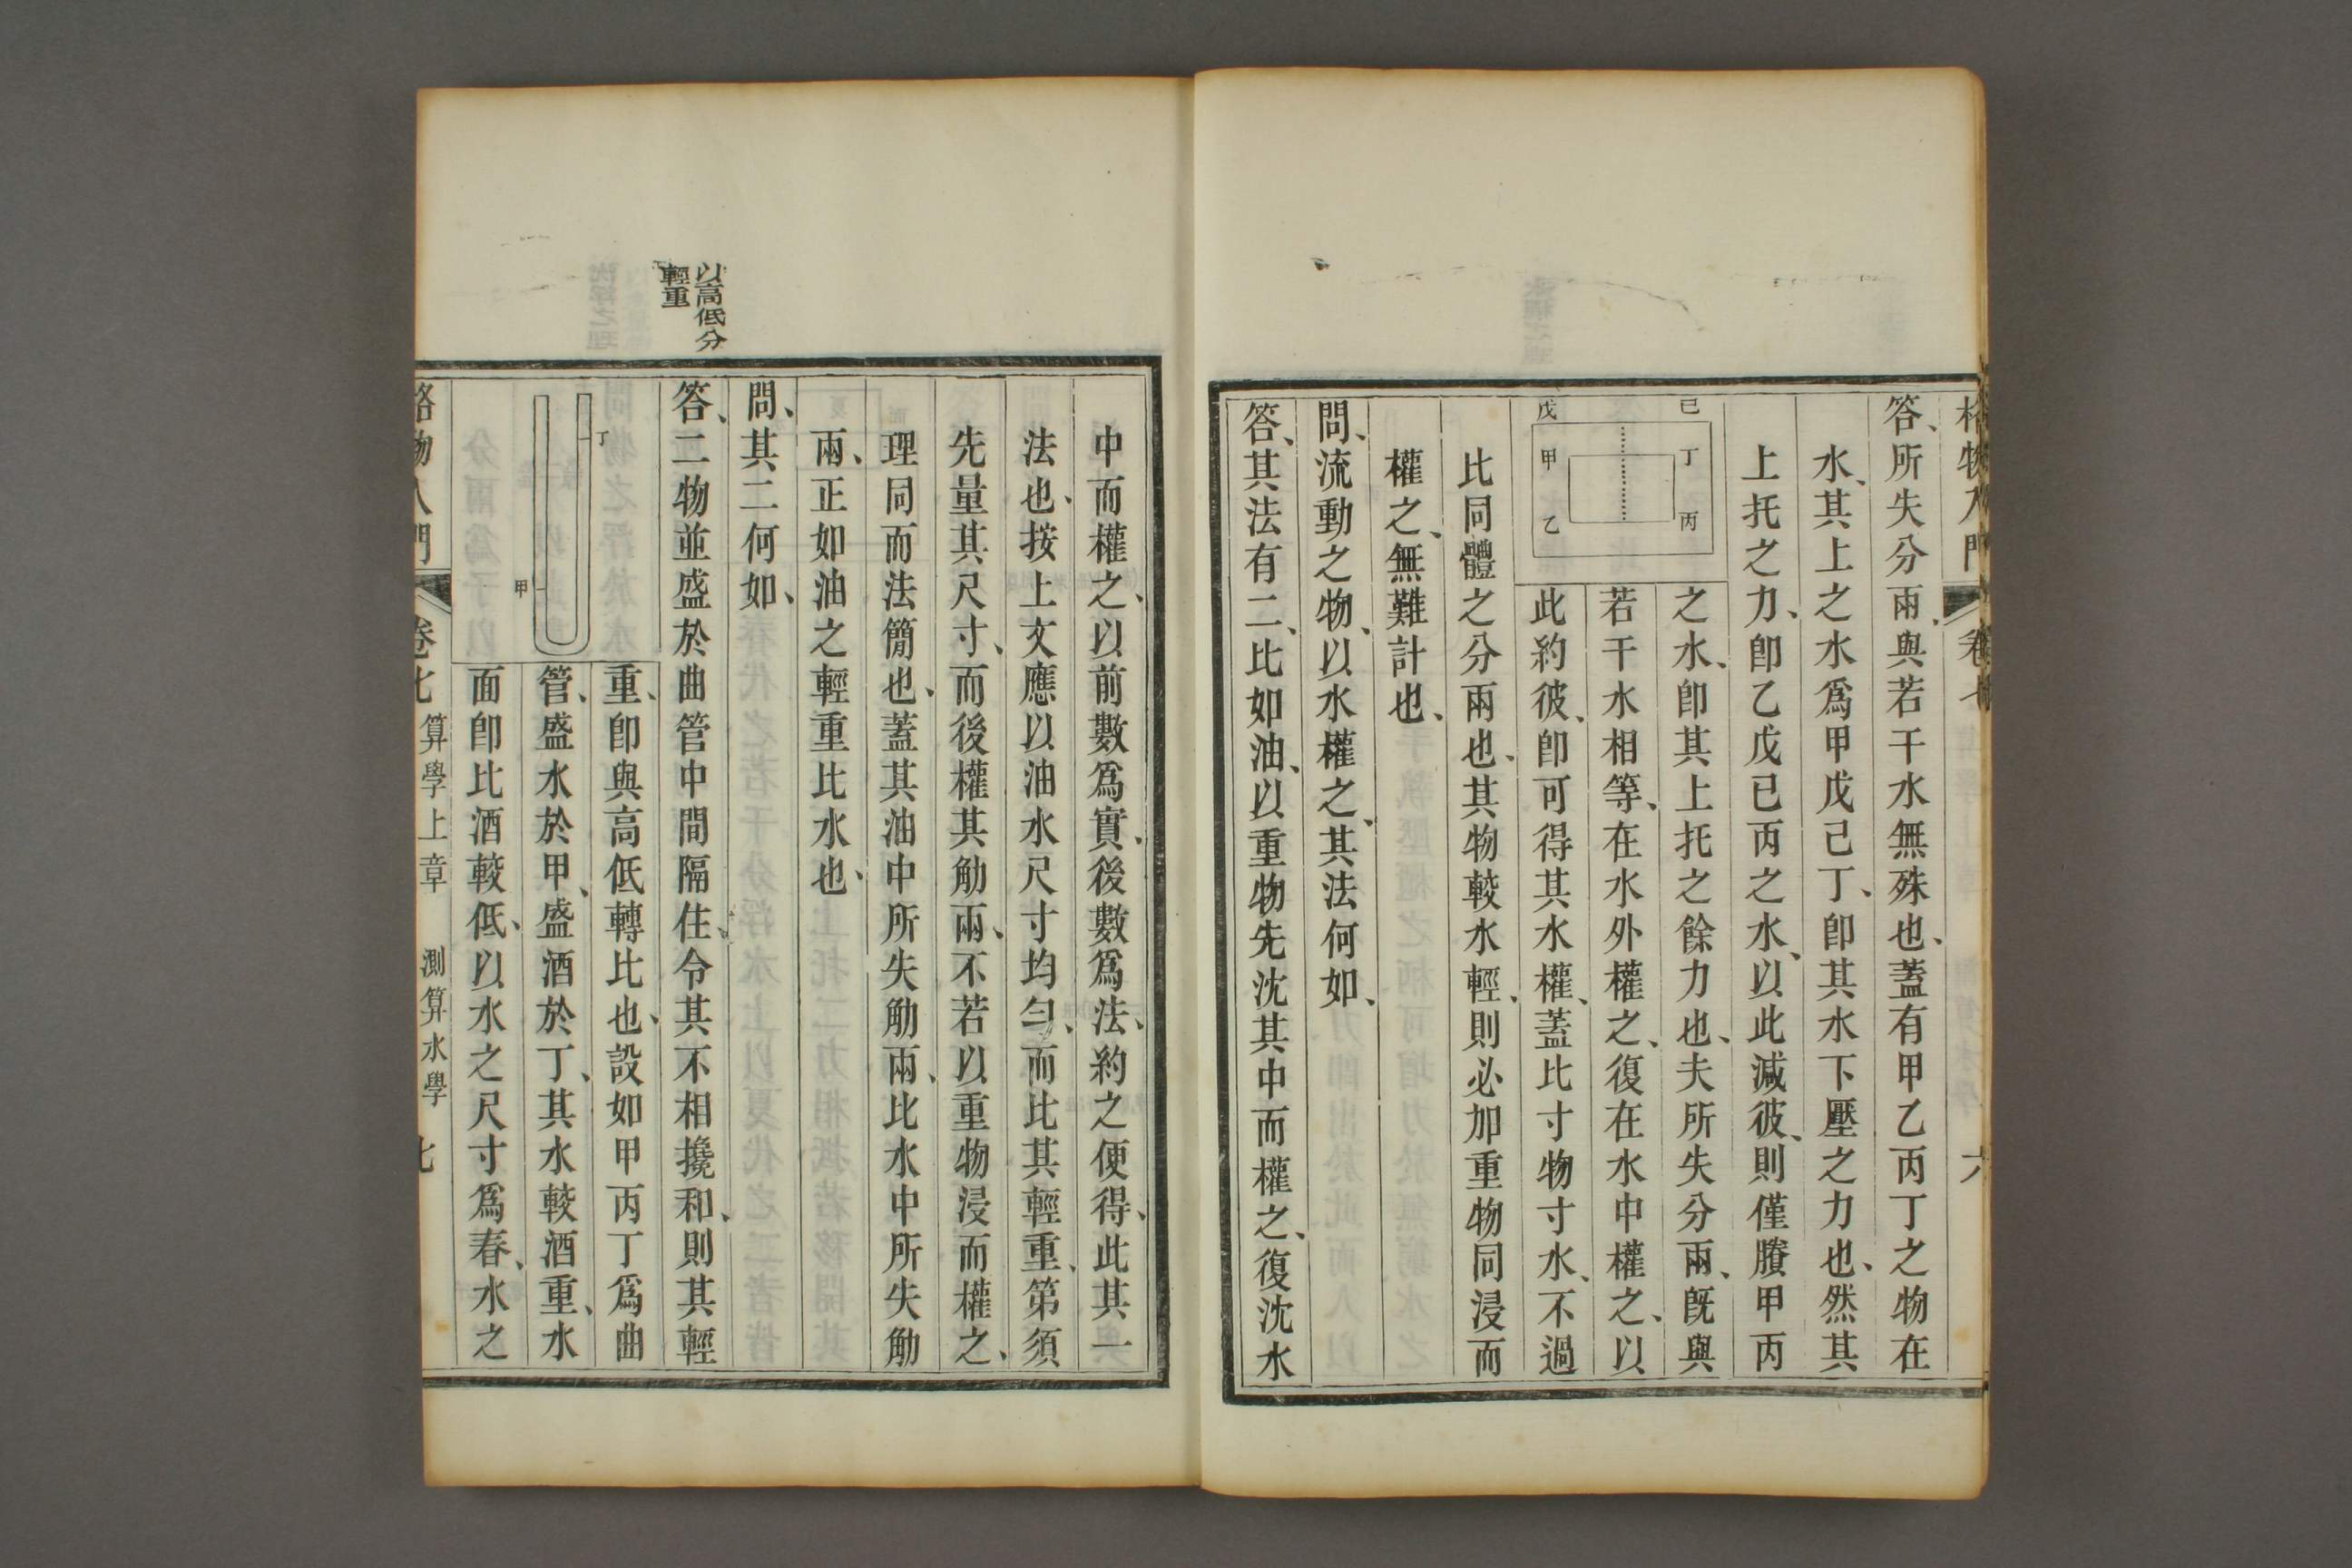 格物入門 卷七 六
答、所失分兩、與若干水無殊也、蓋有甲乙丙丁之物在
水、其上之水爲甲戊己丁、卽其水下壓之力也、然其
上托之力、卽乙戊已丙之水、以此減彼、則僅賸甲丙
之水、卽其上托之餘力也、夫所失分兩、旣與
若干水相等、在水外權之、復在水中權之、以
此約彼、卽可得其水權、蓋比寸物寸水、不過
已
丁
丙
戊
甲
乙
比同體之分兩也、其物較水輕、則必加重物同浸而
權之、無難計也、
問、流動之物、以水權之、其法何如、
答、其法有二、比如油、以重物先沈其中而權之、復沈水
中而權之、以前數爲實、後數爲法、約之便得、此其一
法也、按上文應以油水尺寸均勻、而比其輕重、第須
先量其尺寸、而後權其觔兩、不若以重物浸而權之、
理同而法簡也、蓋其油中所失觔兩、比水中所失觔
兩、正如油之輕重比水也、
問、其二何如、
以高低分
輕重
答、二物並盛於曲管中間隔住、令其不相攙和、則其輕
重、卽與高低轉比也、設如甲丙丁爲曲
管、盛水於甲、盛酒於丁、其水較酒重、水
面卽比酒較低、以水之尺寸爲春、水之
丁
甲
格物入門 卷七 算學上章 測算水學 七